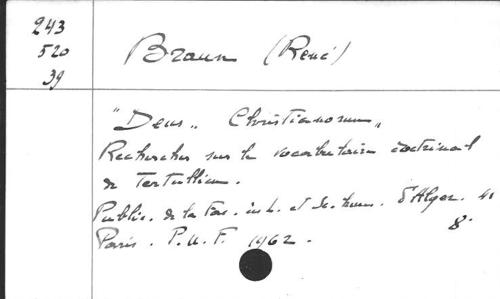 243
520
39
Braun (René)
"Deus" Christianorum"
Recherches sur le vocabulaire doctrinal
de Tertullien.
Public. de la Fac. des L. et Sc. hum. d'Alger. 41
8°
Paris. P.U.F. 1962.